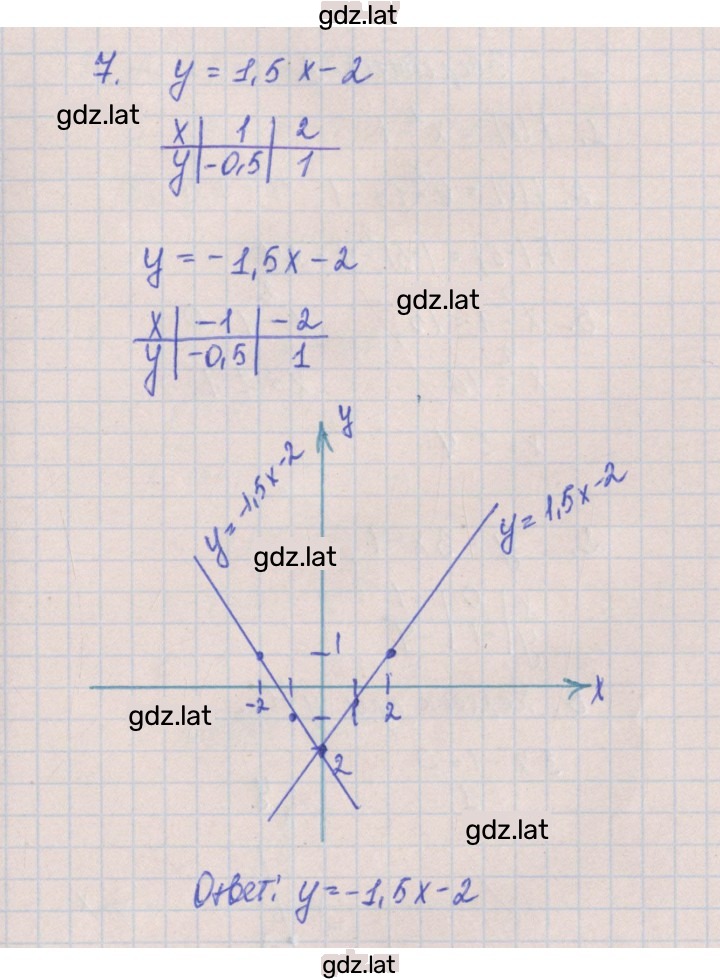 gdz.lat
7. y = 1,5x - 2
gdz.lat
x | 1 | 2
y | -0,5 | 1
y = -1,5x - 2
gdz.lat
x | -1 | -2
y | -0,5 | 1
y
y = -1,5x - 2
y = 1,5x - 2
gdz.lat
1
x
-2 1 2
gdz.lat
2
gdz.lat
Ответ: y = -1,5x - 2
gdz.lat